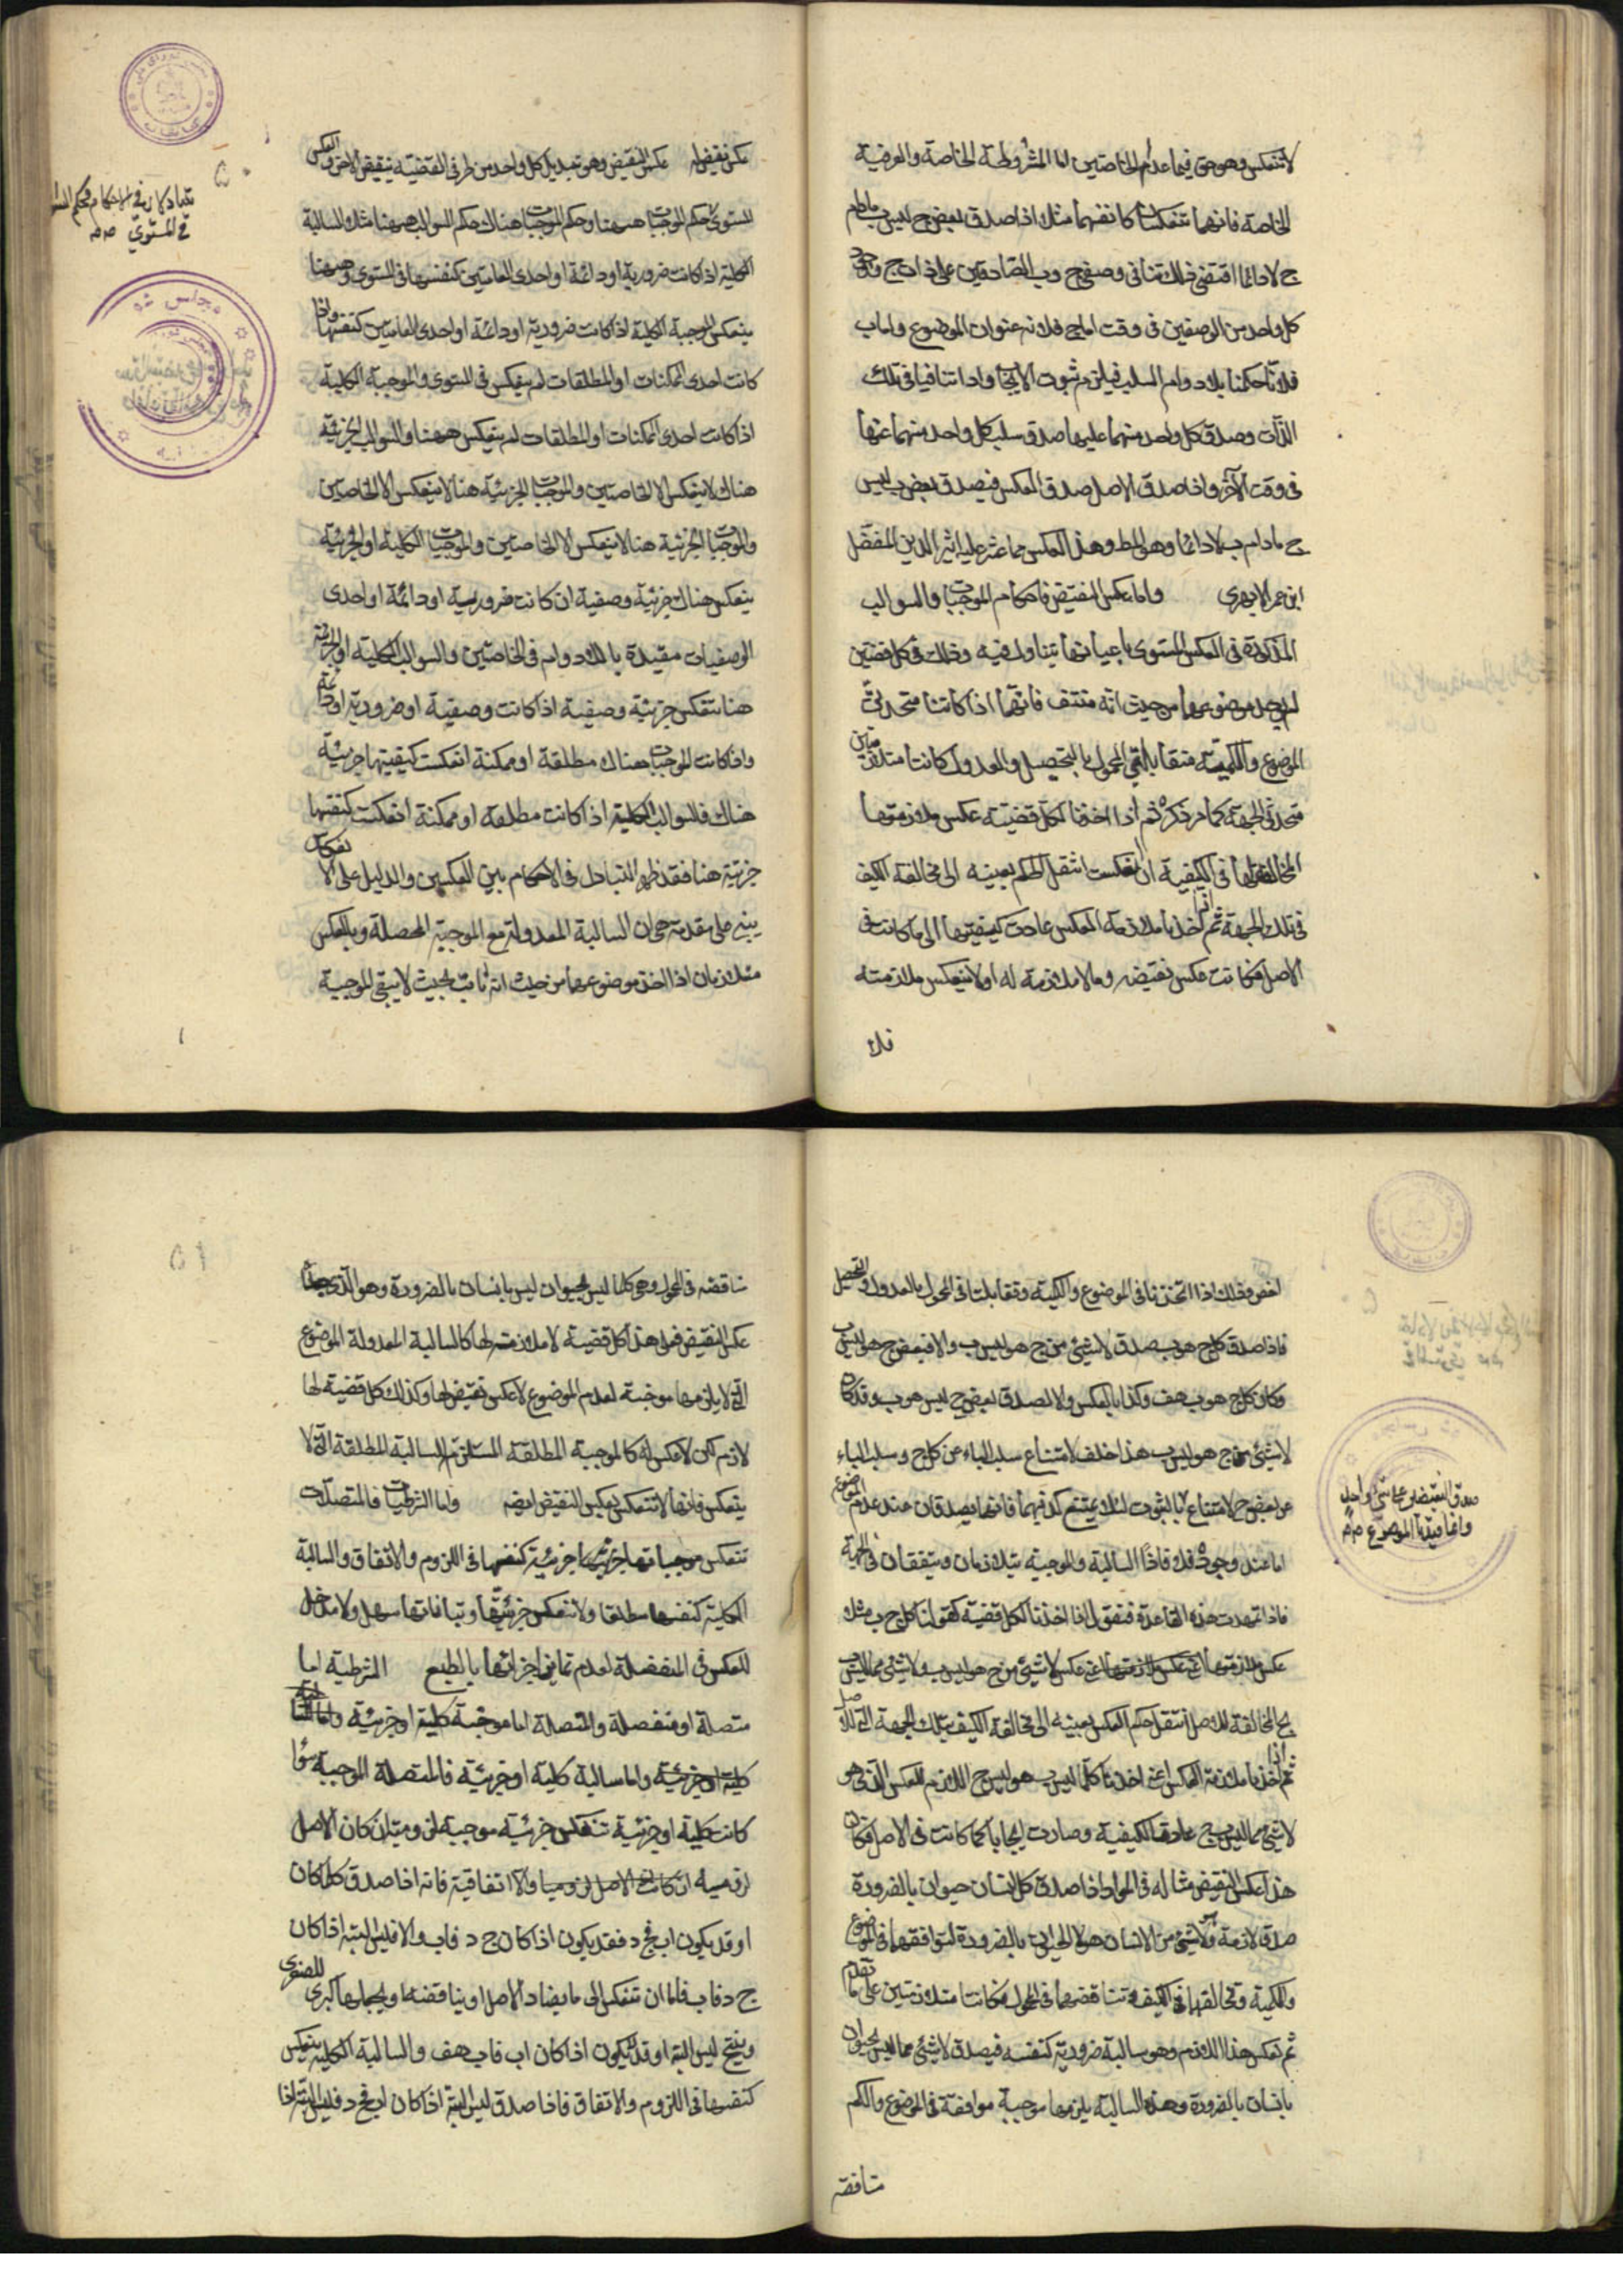 لا تنعكس وهو حق فيما عدا الخاصتين اما المشروطة الخاصة والعرفية
الخاصة فانهما تنعكسان كانفسهما مثلا اذا صدق بعض ج ليس ب مادام
ج لا دائما اقتضى ذلك تنافى وصفى ج و ب الصادقين على ذات ج
كل واحد من الوصفين فى وقت اما ج فلانه عنوان الموضوع واما ب
فلانا حكمنا بلا دوام السلب فيلزم ثبوت الايجاب واذا تنافيا فى تلك
الذات وصدق كل واحد منهما عليها صدق سلب كل واحد منهما عنها
فى وقت الآخر واذا صدق الاصل صدق العكس فيصدق بعض ب ليس
ج مادام ب لا دائما وهو المط وهذا العكس مما عثر عليه اثير الدين المفضل
ابن عمر الابهرى واما عكس النقيض فاحكام الموجبات والسوالب
المذكورة فى العكس المستوى باعيانها يتناوله فيه وذلك فى كل قضيتين
لم يوجد موضوعهما من حيث انه منتف فانهما اذا كانتا متحدتى
الموضوع والكمية متقابلتى المحمول بالتحصيل والعدول كانتا متلازمتين
متحدتى الجهة كما مر ذكره ثم اذا اخذنا لكل قضية عكس ملازمتها
المخالفة لها فى الكيفية ان انعكست انتقل الحكم بعينه الى مخالفة الكيف
فى تلك الجهة ثم اذا اخذنا ملازمة العكس عادت كيفيتها الى ما كانت فى
الاصل فكانت عكس نقيضه وما لا ملازمة له او لا ينعكس ملازمته
فلا
عكس نقيض له عكس النقيض وهو تبديل كل واحد من طرفى القضية بنقيض الاخر والعكس
المستوى حكم الموجبات ههنا وحكم الموجبات هناك حكم السوالب ههنا مثلا السالبة
الكلية اذا كانت ضرورية او دائمة او احدى العامتين كنفسها فى المستوى وههنا
ينعكس الموجبة الكلية اذا كانت ضرورية او دائمة او احدى العامتين كنفسها واذا
كانت احدى الممكنات او المطلقات لم ينعكس فى المستوى والموجبة الكلية
اذا كانت احدى الممكنات او المطلقات لم ينعكس ههنا والسوالب الجزئية
هناك لا ينعكس الا الخاصتين والموجبات الجزئية هنا لا ينعكس الا الخاصتين
والموجبات الجزئية هنا لا ينعكس الا الخاصتين والموجبات الكلية او الجزئية
ينعكس هناك جزئية وصفية ان كانت ضرورية او دائمة او احدى
الوصفيات مقيدة باللادوام فى الخاصتين والسوالب الكلية او الجزئية
هنا تنعكس جزئية وصفية اذا كانت وصفية او ضرورية او دائمة
واذا كانت الموجبات هناك مطلقة او ممكنة انعكست كيفيتها جزئية
هناك فالسوالب الكلية اذا كانت مطلقة او ممكنة انعكست كنفسها
جزئية هنا فقد ظهر التبادل فى الاحكام بين العكسين والدليل على الا
يبنى على مقدمة هى ان السالبة المعدولة مع الموجبة المحصلة وبالعكس
متلازمان اذا اخذ موضوعهما من حيث انه ثابت بحيث لا يبقى الموجبة
فى المستوى
اخص وذلك اذا اتحدتا فى الموضوع والكمية وتقابلتا فى المحمول بالعدول والتحصيل
فاذا صدق كل ج هو ب صدق لا شىء من ج هو ليس ب والا فبعض ج هو ليس ب
وكان كل ج هو ب هف وكذا بالعكس والا لصدق بعض ج ليس هو ب وقد كان
لا شىء من ج هو ليس ب هذا خلف لامتناع سلب الباء عن كل ج وسلب الباء
عن بعض ج لامتناع
اما عند وجوده فلا فاذا السالبة والموجبة يتلازمان ويتفقان فى الجهة
فاذا تمهدت هذه القاعدة فنقول اذا اخذنا لكل قضية كقولنا كل ج ب مثلا
عكس ملازمتها اعنى عكس لا شىء من ج هو ليس ب ولا شىء مما ليس ب
ج المخالفة للاصل انتقل حكم العكس بعينه الى مخالفة الكيف بتلك الجهة التى للاصل
ثم اذا اخذنا ملازمة العكس اعنى اخذنا كلما ليس ب هو ليس ج اللازم للعكس الذى هو
لا شىء مما ليس ب ج عادت الكيفية وصارت ايجابا كما كانت فى الاصل فكان
هذا عكس النقيض مثاله فى المواد اذا صدق كل انسان حيوان بالضرورة
صدق لازمة ولا شىء من الانسان هو لا حيوان بالضرورة لتوافقهما فى الموضوع
والكمية وتخالفهما فى الكيف وتناقضهما فى المحمول فكانتا متلازمتين على ما تقدم
ثم تعكس هذا اللازم وهو سالبة ضرورية كنفسه فيصدق لا شىء مما ليس بحيوان
بانسان بالضرورة وهذه السالبة يلزمها موجبة موافقة فى الموضوع والكم
صدق النقيضين على شىء واحد
مناقضه فى المحمول وهى كلما ليس بحيوان ليس بانسان بالضرورة وهو الذى
عكس النقيض فعلى هذا كل قضية لا ملازمة لها كالسالبة المعدولة الموضوع
التى لا يلزمها موجبة لعدم الموضوع لا عكس نقيض لها وكذلك كل قضية لها
لازم لكن لا عكس له كالموجبة المطلقة المستلزم السالبة المطلقة التى لا
ينعكس فانها لا تنعكس بعكس النقيض ايضه واما الشرطيات فالمتصلات
تنعكس موجباتها جزئية كنفسها فى اللزوم والاتفاق والسالبة
الكلية كنفسها مطلقا ولا تنعكس جزئيتها وبياناتها سهل ولا مدخل
للعكس فى المنفصلة لعدم تمايز اجزائها بالطبع الشرطية اما
متصلة او منفصلة والمتصلة اما موجبة كلية او جزئية
كلية او جزئية واما سالبة كلية او جزئية فالمتصلة الموجبة سواء
كانت كلية او جزئية تنعكس جزئية موجبة لزومية ان كان الاصل
لزوميه ان كانت الاصل لزوميا والا اتفاقية فانه اذا صدق كلما كان
او قد يكون اب فج د فقد يكون اذا كان ج د فاب والا فليس البتة اذا كان
ج د فاب فاما ان تنعكس الى ما يضاد الاصل او يناقضه او يجعلها كبرى للصغرى
وينتج ليس البتة او قد لا يكون اذا كان اب فاب هف والسالبة الكلية ينعكس
كنفسها فى اللزوم والاتفاق فاذا صدق ليس البتة اذا كان اب فج د فليس البتة اذا